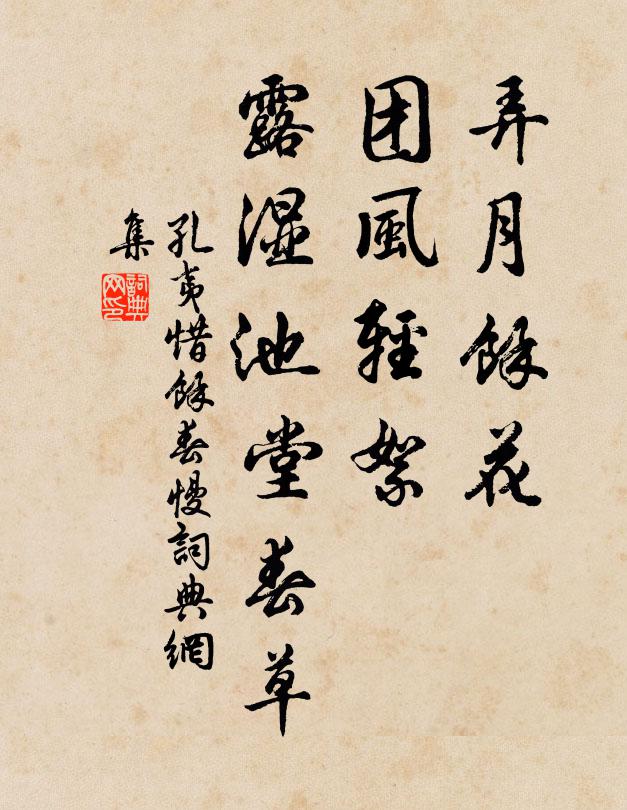 弄月餘花
团風輕絮
露湿池堂春草
孔夷惜餘春慢詞典網
集
詞典
网印